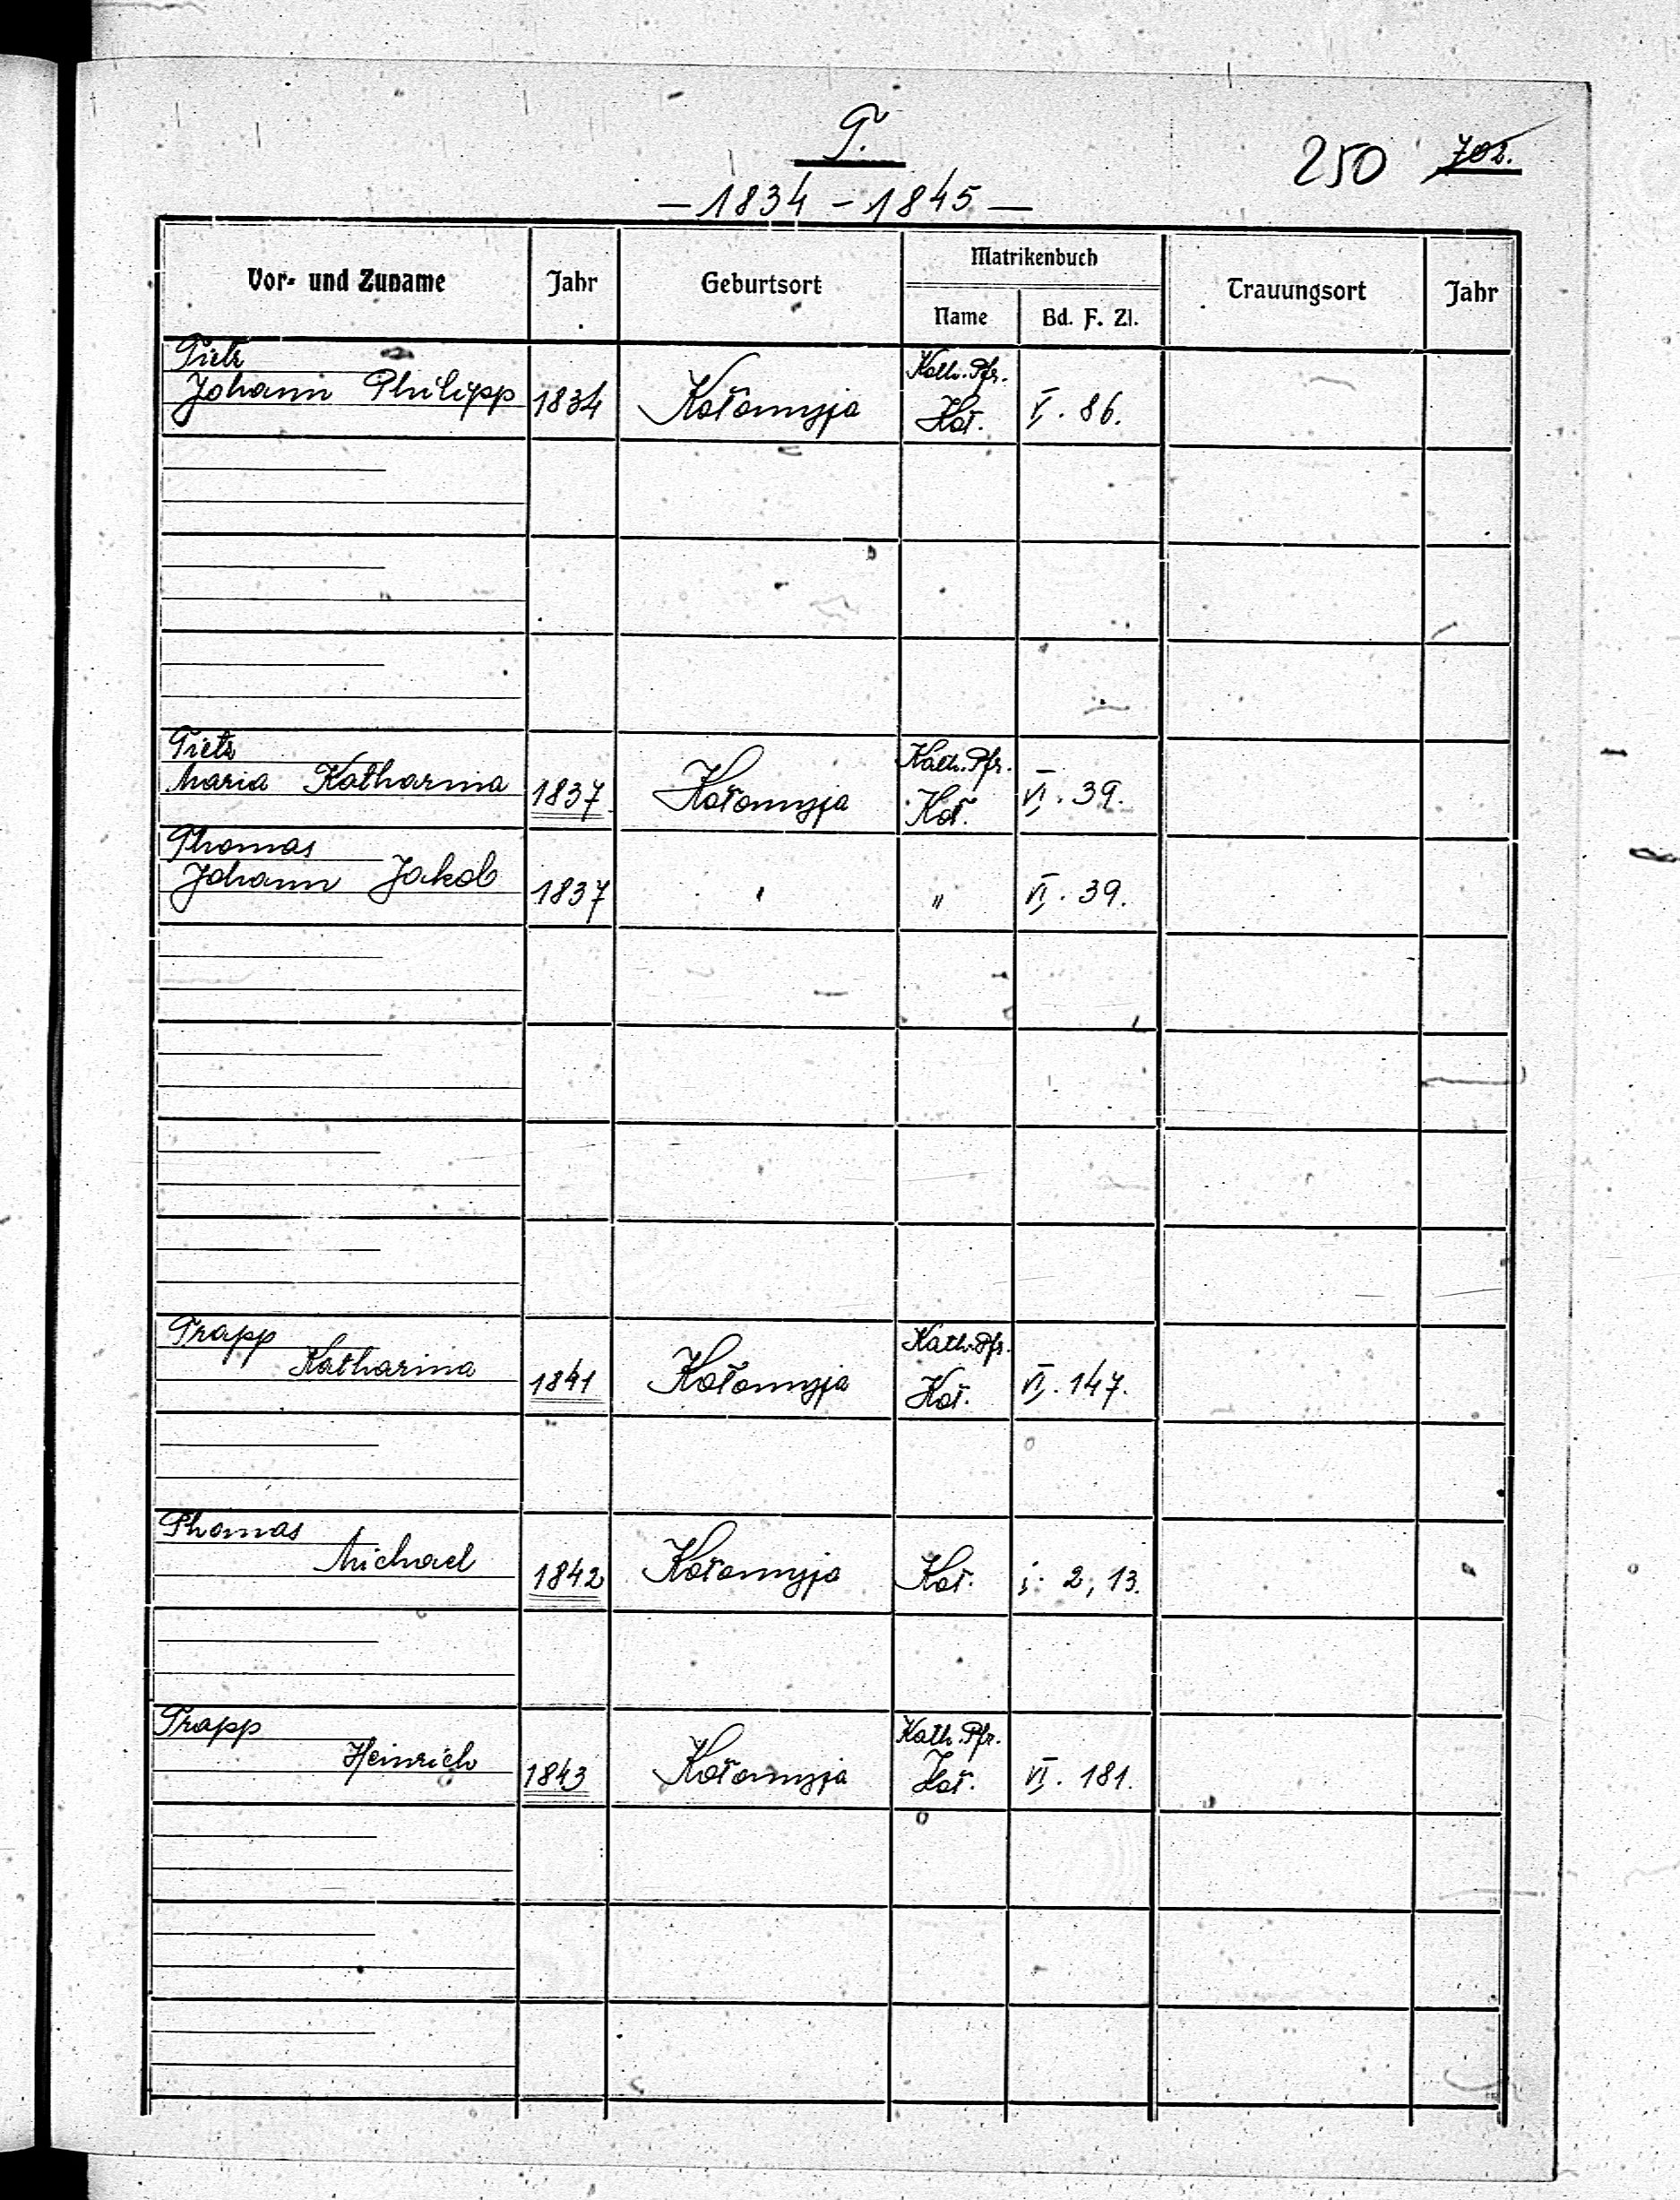 T.
250 702.
— 1834 – 1845 —
Vor- und Zuname Jahr Geburtsort Matrikenbuch Trauungsort Jahr
Name Bd. F. Zl.
Tietz Kath. Pfr.
Johann Philipp 1834 Kołomyja Koł. V. 86.
Tietz Kath. Pfr.
Maria Katharina 1837 Kołomyja Koł. VI. 39.
Thomas
Johann Jakob 1837 " " VI. 39.
Trapp Kath. Pfr.
Katharina 1841 Kołomyja Koł. VI. 147.
Thomas
Michael 1842 Kołomyja Koł. i. 2, 13.
Trapp Kath. Pfr.
Heinrich 1843 Kołomyja Koł. VI. 181.